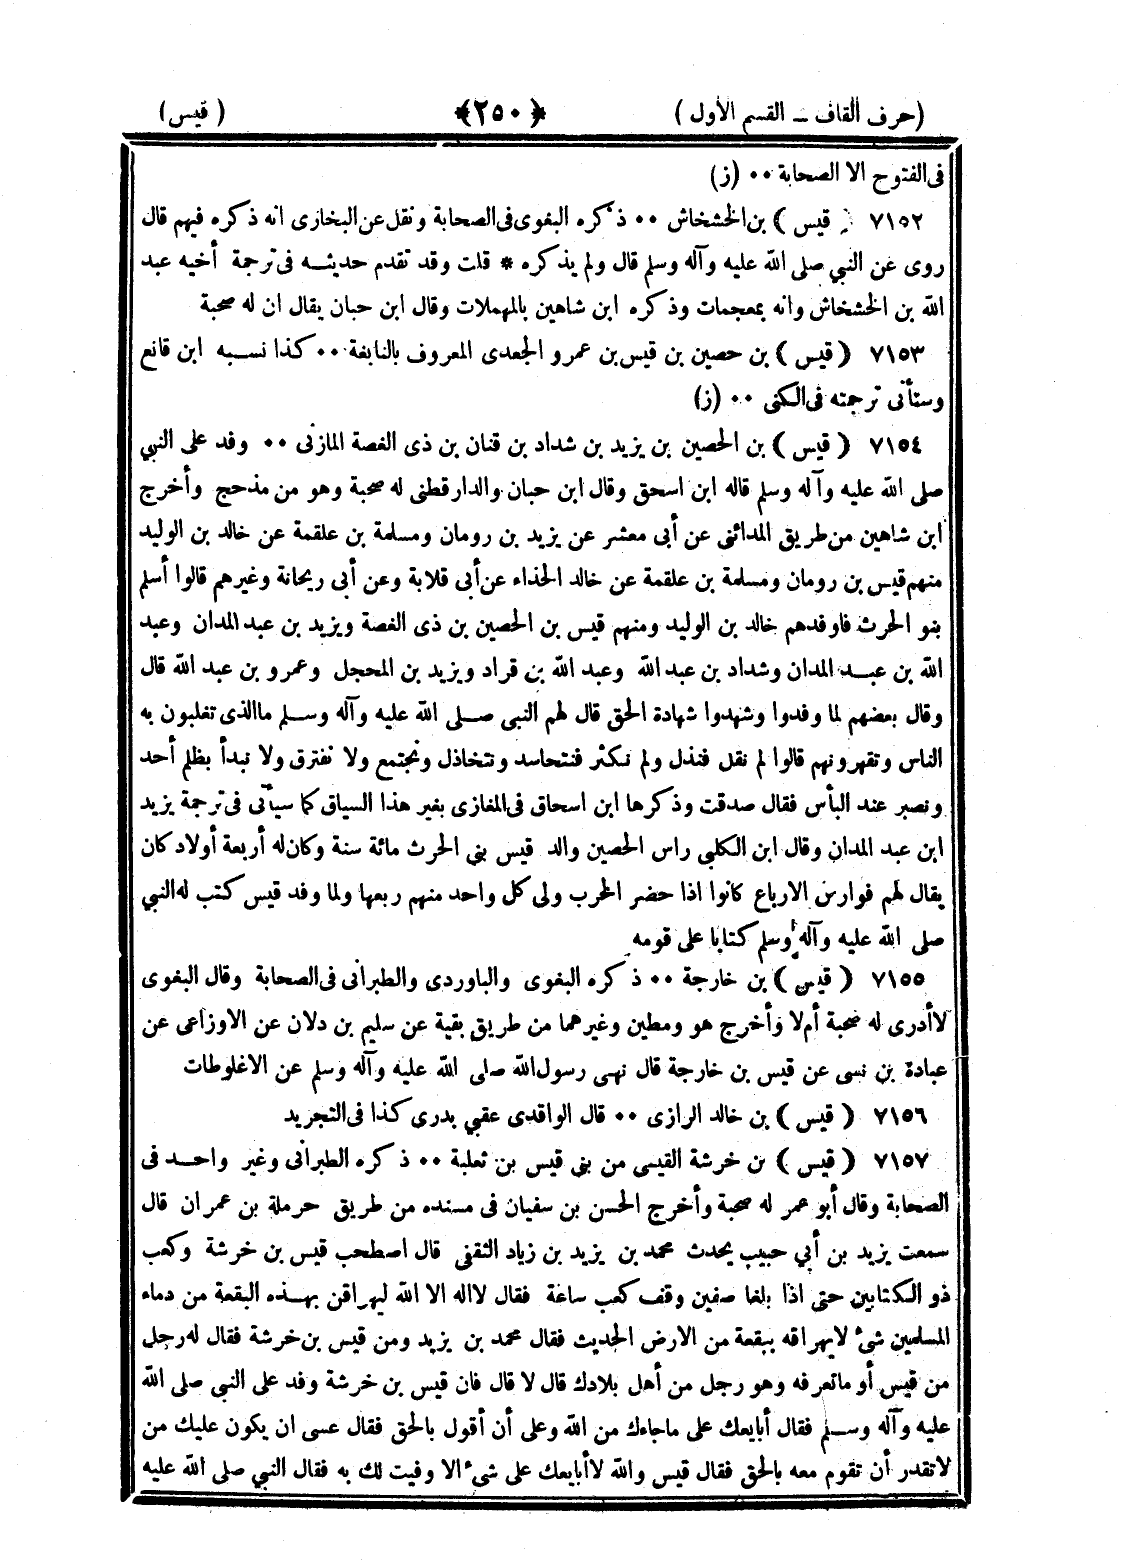 (حرف ألقاف ــ القسم الأول) ﴿٢٥٠﴾ (قيس)
فى الفتوح الا الصحابة ٠٠ (ز)
٧١٥٢ (قيس) بن الخشخاش ٠٠ ذكره البغوى فى الصحابة ونقل عن البخارى انه ذكره فيهم قال
روى عن النبي صلى الله عليه وآله وسلم قال ولم يذكره * قلت وقد تقدم حديثه فى ترجمة أخيه عبد
الله بن الخشخاش وانه بمعجمات وذكره ابن شاهين بالمهملات وقال ابن حبان يقال ان له صحبة
٧١٥٣ (قيس) بن حصين بن قيس بن عمرو الجعدى المعروف بالنابغة ٠٠ كذا نسبه ابن قانع
وستأتى ترجمته فى الكنى ٠٠ (ز)
٧١٥٤ (قيس) بن الحصين بن يزيد بن شداد بن قنان بن ذى الغصة المازنى ٠٠ وفد على النبي
صلى الله عليه وآله وسلم قاله ابن اسحق وقال ابن حبان والدارقطنى له صحبة وهو من مذحج وأخرج
ابن شاهين من طريق المدائنى عن أبى معشر عن يزيد بن رومان ومسلمة بن علقمة عن خالد بن الوليد
منهم قيس بن رومان ومسلمة بن علقمة عن خالد الحذاء عن أبى قلابة وعن أبى ريحانة وغيرهم قالوا أسلم
بنو الحرث فاوفدهم خالد بن الوليد ومنهم قيس بن الحصين بن ذى الغصة ويزيد بن عبد المدان وعبد
الله بن عبد المدان وشداد بن عبد الله وعبد الله بن قراد ويزيد بن المحجل وعمرو بن عبد الله قال
وقال بعضهم لما وفدوا وشهدوا شهادة الحق قال لهم النبى صلى الله عليه وآله وسلم ما الذى تغلبون به
الناس وتقهرونهم قالوا لم نقل فنذل ولم نكثر فنتحاسد ونتخاذل ونجتمع ولا نفترق ولا نبدأ بظلم أحد
ونصبر عند البأس فقال صدقت وذكرها ابن اسحاق فى المغازى بغير هذا السياق كما سيأتى فى ترجمة يزيد
ابن عبد المدان وقال ابن الكلبي راس الحصين والد قيس بنى الحرث مائة سنة وكان له أربعة أولاد كان
يقال لهم فوارس الارباع كانوا اذا حضر الحرب ولى كل واحد منهم ربعها ولما وفد قيس كتب له النبي
صلى الله عليه وآله وسلم كتابا على قومه
٧١٥٥ (قيس) بن خارجة ٠٠ ذكره البغوى والباوردى والطبرانى فى الصحابة وقال البغوى
لا أدرى له صحبة أم لا وأخرج هو ومطين وغيرهما من طريق بقية عن سليم بن دلان عن الاوزاعى عن
عبادة بن نسى عن قيس بن خارجة قال نهى رسول الله صلى الله عليه وآله وسلم عن الاغلوطات
٧١٥٦ (قيس) بن خالد الرازى ٠٠ قال الواقدى عقبي بدرى كذا فى التجريد
٧١٥٧ (قيس) بن خرشة القيسى من بنى قيس بن ثعلبة ٠٠ ذكره الطبرانى وغير واحد فى
الصحابة وقال أبو عمر له صحبة وأخرج الحسن بن سفيان فى مسنده من طريق حرملة بن عمران قال
سمعت يزيد بن أبي حبيب يحدث محمد بن يزيد بن زياد الثقفى قال اصطحب قيس بن خرشة وكعب
ذو الكتابين حتى اذا بلغا صفين وقف كعب ساعة فقال لا اله الا الله ليهراقن بهذه البقعة من دماء
المسلمين شىء لا يهراقه ببقعة من الارض الحديث فقال محمد بن يزيد ومن قيس بن خرشة فقال له رجل
من قيس أو ما تعرفه وهو رجل من أهل بلادك قال لا قال فان قيس بن خرشة وفد على النبي صلى الله
عليه وآله وسلم فقال أبايعك على ما جاءك من الله وعلى أن أقول بالحق فقال عسى ان يكون عليك من
لا تقدر أن تقوم معه بالحق فقال قيس والله لا أبايعك على شىء الا وفيت لك به فقال النبي صلى الله عليه